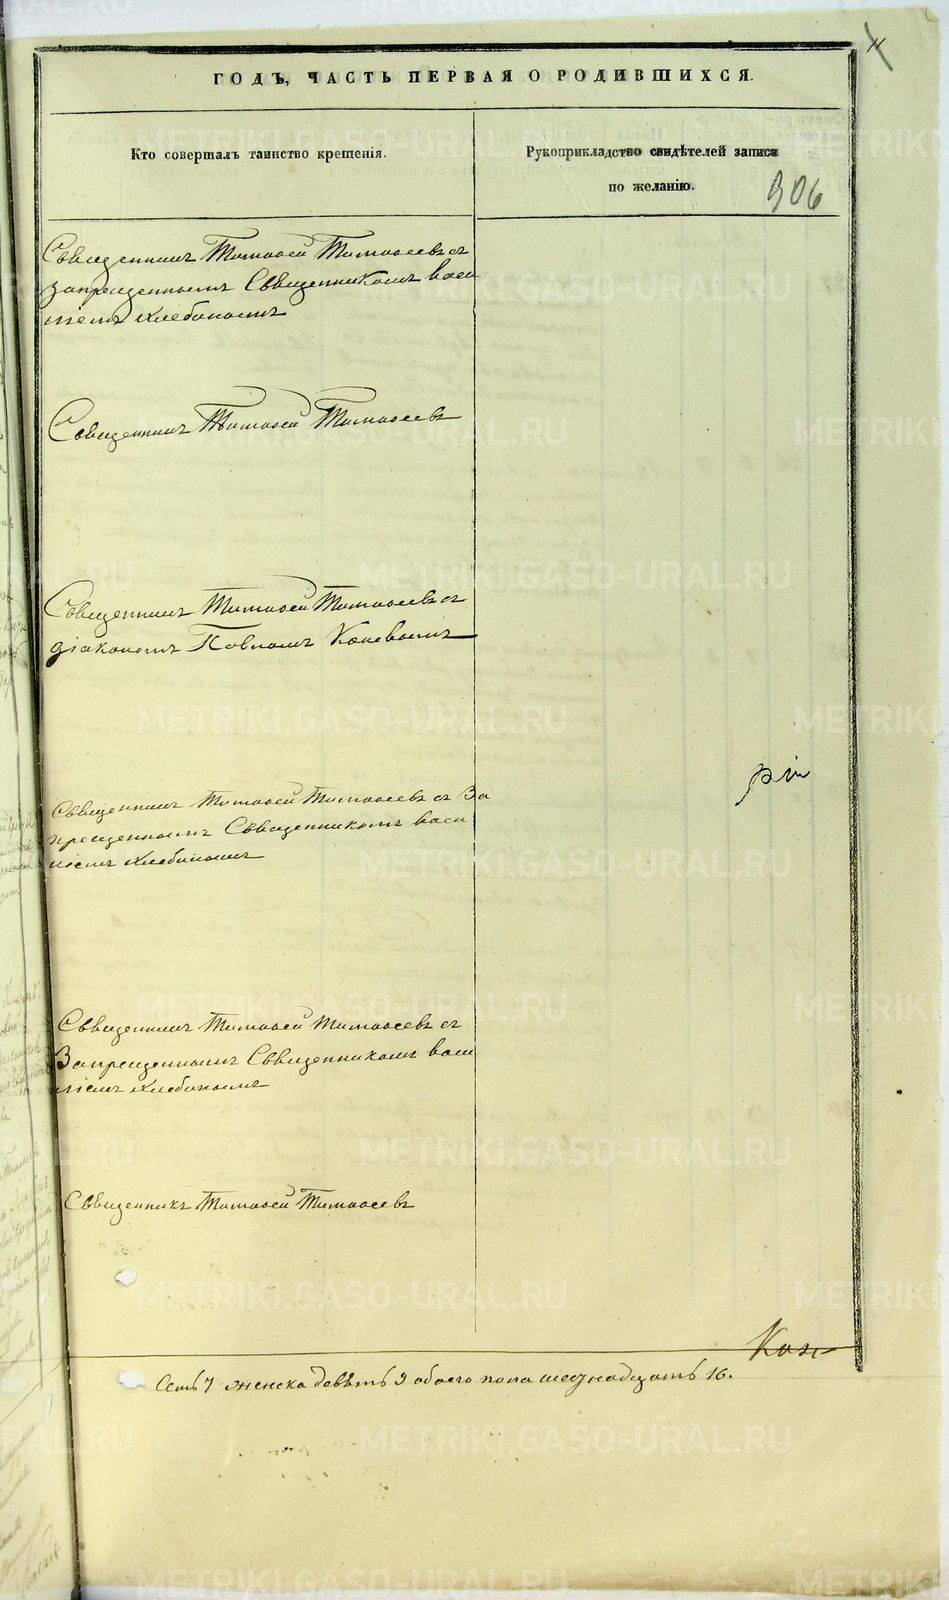 ГОДЪ, ЧАСТЬ ПЕРВАЯ О РОДИВШИХСЯ.
11
Кто совершалъ таинство крещенія.
Рукоприкладство свидѣтелей записи
по желанію.
306
Священникъ Тимоѳей Тимоѳеевъ съ
запрещеннымъ Священникомъ Васи
ліемъ Хлебинымъ
Священникъ Тимоѳей Тимоѳеевъ
Священникъ Тимоѳей Тимоѳеевъ съ
діакономъ Павломъ Коневымъ
Священникъ Тимоѳей Тимоѳеевъ съ За
прещеннымъ Священникомъ Васи
ліемъ Хлебинымъ
Священникъ Тимоѳей Тимоѳеевъ съ
Запрещеннымъ Священникомъ Васи
ліемъ Хлебинымъ
Священникъ Тимоѳей Тимоѳеевъ
Семь 7 женска девять 9 обоего пола шеснадцать 16.
METRIKI.GASO-URAL.RU